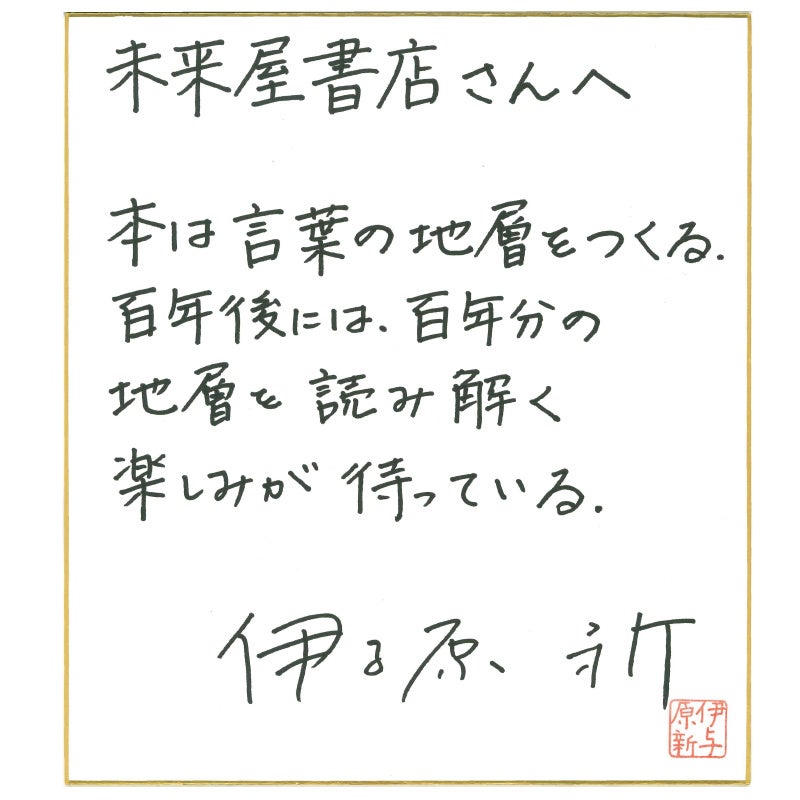 未来屋書店さんへ
本は言葉の地層をつくる.
百年後には.百年分の
地層を読み解く
楽しみが待っている.
伊与原 新
伊与原新